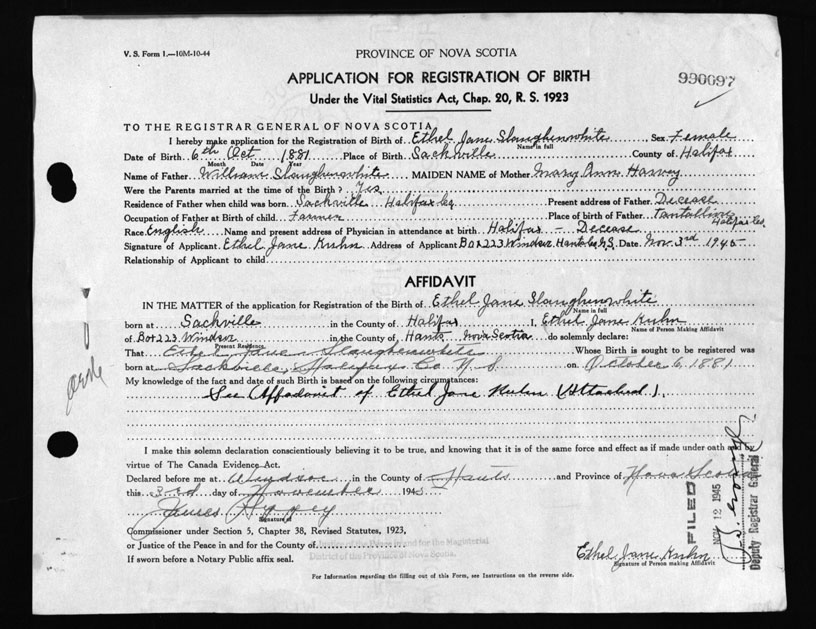 V. S. Form 1.—10M-10-44
PROVINCE OF NOVA SCOTIA
APPLICATION FOR REGISTRATION OF BIRTH
990097
Under the Vital Statistics Act, Chap. 20, R. S. 1923
TO THE REGISTRAR GENERAL OF NOVA SCOTIA
I hereby make application for the Registration of Birth of Ethel Jane Slaughenwhite Sex Female
Name in full
Date of Birth 6th Oct 1881 Place of Birth Sackville County of Halifax
Month Date Year
Name of Father William Slaughenwhite MAIDEN NAME of Mother Mary Ann Harvey
Were the Parents married at the time of the Birth? Yes
Residence of Father when child was born Sackville Halifax Co Present address of Father Decease
Occupation of Father at Birth of child Farmer Place of birth of Father Tantalline Halifax Co.
Race English Name and present address of Physician in attendance at birth Halifax - Decease
Signature of Applicant Ethel Jane Kuhn Address of Applicant Box 223 Windsor Hants Co N.S. Date Nov. 3rd 1945-
Relationship of Applicant to child
AFFIDAVIT
IN THE MATTER of the application for Registration of the Birth of Ethel Jane Slaughenwhite
Name in full
born at Sackville in the County of Halifax I, Ethel Jane Kuhn
Name of Person Making Affidavit
of Box 223 Windsor in the County of Hants Nova Scotia do solemnly declare:
Present Residence
That Ethel Jane Slaughenwhite Whose Birth is sought to be registered was
born at Sackville, Halifax Co. N. S. on October 6, 1881
My knowledge of the fact and date of such Birth is based on the following circumstances:
See Affadavit of Ethel Jane Kuhn (Attached).
I make this solemn declaration conscientiously believing it to be true, and knowing that it is of the same force and effect as if made under oath and by
virtue of The Canada Evidence Act.
Declared before me at Windsor in the County of Hants and Province of Nova Scotia
this 3rd day of November 1945
James
Signature of
Commissioner under Section 5, Chapter 38, Revised Statutes, 1923,
or Justice of the Peace in and for the County of
If sworn before a Notary Public affix seal.
Ethel Jane Kuhn
Signature of Person making Affidavit
For Information regarding the filling out of this Form, see Instructions on the reverse side.
FILED
NOV 12 1945
Deputy Registrar General